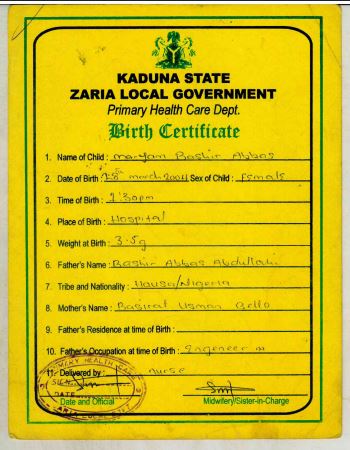 KADUNA STATE
ZARIA LOCAL GOVERNMENT
Primary Health Care Dept.
Birth Certificate
1. Name of Child: maryam Bashir Abbas
2. Date of Birth: 28th march 2004 Sex of Child: female
3. Time of Birth: 2:30pm
4. Place of Birth: Hospital
5. Weight at Birth: 3.5g
6. Father's Name: Bashir Abbas Abdullahi
7. Tribe and Nationality: Hausa/Nigeria
8. Mother's Name: Basirat Usman Bello
9. Father's Residence at time of Birth:
10. Father's Occupation at time of Birth: Engeneer
11. Delivered by: nurse
Date and Official
Midwifery/Sister-in-Charge
PRIMARY HEALTH CARE
SIGN
DATE
ZARIA LOCAL GOVT